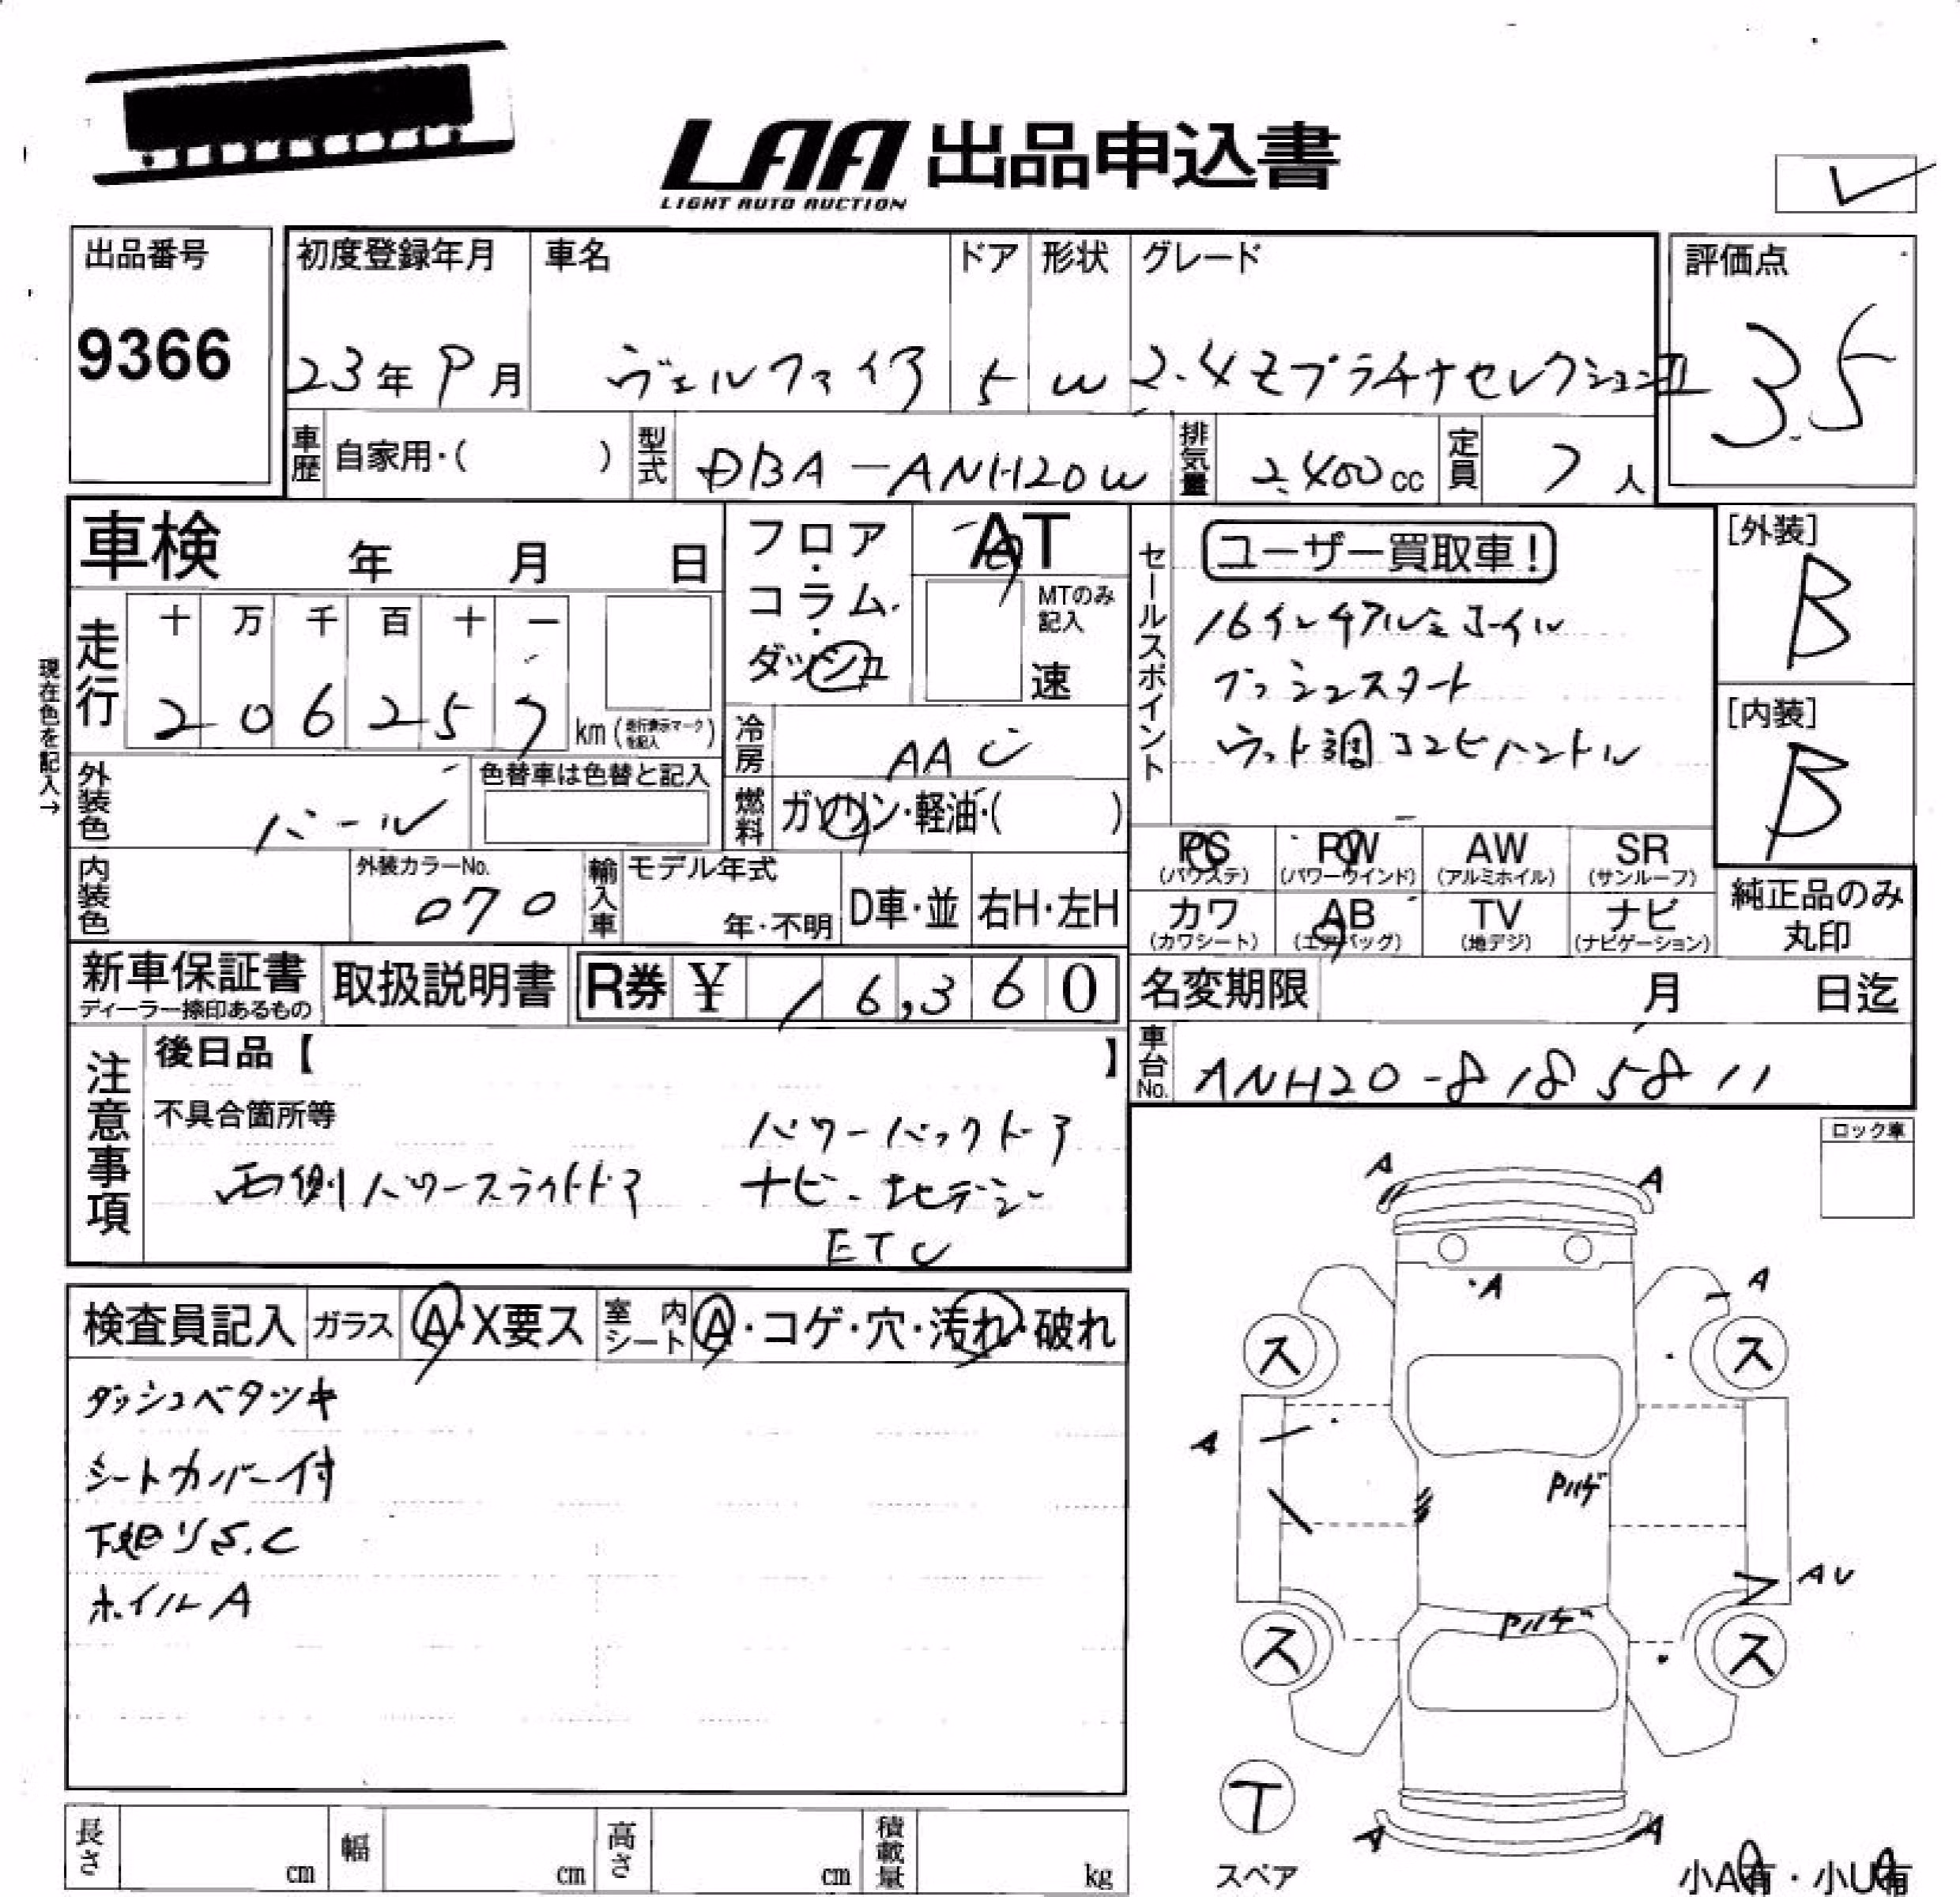 LAA 出品申込書
LIGHT AUTO AUCTION
出品番号
9366
初度登録年月
23年9月
車名
ヴェルファイア
ドア
5
形状
W
グレード
2.4Zプラチナセレクションⅱ
評価点
3.5
車歴
自家用・( )
型式
DBA-ANH20W
排気量
2.400cc
定員
7人
車検 年 月 日
フロア・コラム・ダッシュ
AT
MTのみ記入
速
セールスポイント
ユーザー買取車!
16インチアルミホイル
プッシュスタート
ウッド調コンビハンドル
[外装]
B
[内装]
B
現在色を記入→
走行
十 万 千 百 十 一
2 0 6 2 5 7 km (走行表示マークを記入)
冷房
AAC
燃料
ガソリン・軽油・( )
外装色
パール
色替車は色替と記入
内装色
外装カラーNo.
070
輸入車
モデル年式
年・不明
D車・並
右H・左H
PS (パワステ)
PW (パワーウインド)
AW (アルミホイル)
SR (サンルーフ)
カワ (カワシート)
AB (エアバッグ)
TV (地デジ)
ナビ (ナビゲーション)
純正品のみ丸印
新車保証書
ディーラー捺印あるもの
取扱説明書
R券 ¥ 16,360
名変期限 月 日迄
車台No.
ANH20-8185811
注意事項
後日品【 】
不具合箇所等
パワーバックドア
両側パワースライドドア
ナビ・地デジ
ETC
ロック車
検査員記入
ガラス
A・X要ス
室内シート
A・コゲ・穴・汚れ・破れ
ダッシュベタツキ
シートカバー付
下廻りS.C
ホイルA
A
A
A
A
ス
ス
A
Pハゲ
AU
Pハゲ
ス
ス
T
スペア
A
A
小A有・小U有
長さ cm
幅 cm
高さ cm
積載量 kg